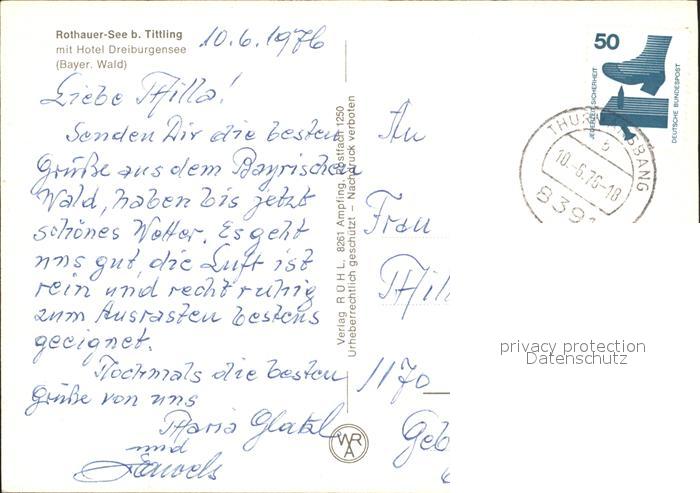 Rothauer-See b. Tittling
mit Hotel Dreiburgensee
(Bayer. Wald)
10.6.1976
Liebe Milla!
Senden Dir die besten
Grüße aus dem Bayrischen
Wald, haben bis jetzt
schönes Wetter. Es geht
uns gut, die Luft ist
rein und recht ruhig
zum Ausrasten bestens
geeignet.
Nochmals die besten
Grüße von uns
Maria
und
Verlag RÜHL, 8261 Ampfing, Postfach 1250
Urheberrechtlich geschützt – Nachdruck verboten
WRA
An
Frau
1170
Geb
50
JEDERZEIT SICHERHEIT
DEUTSCHE BUNDESPOST
THURMANSBANG
b
10.-6.76-18
8391
privacy protection
Datenschutz